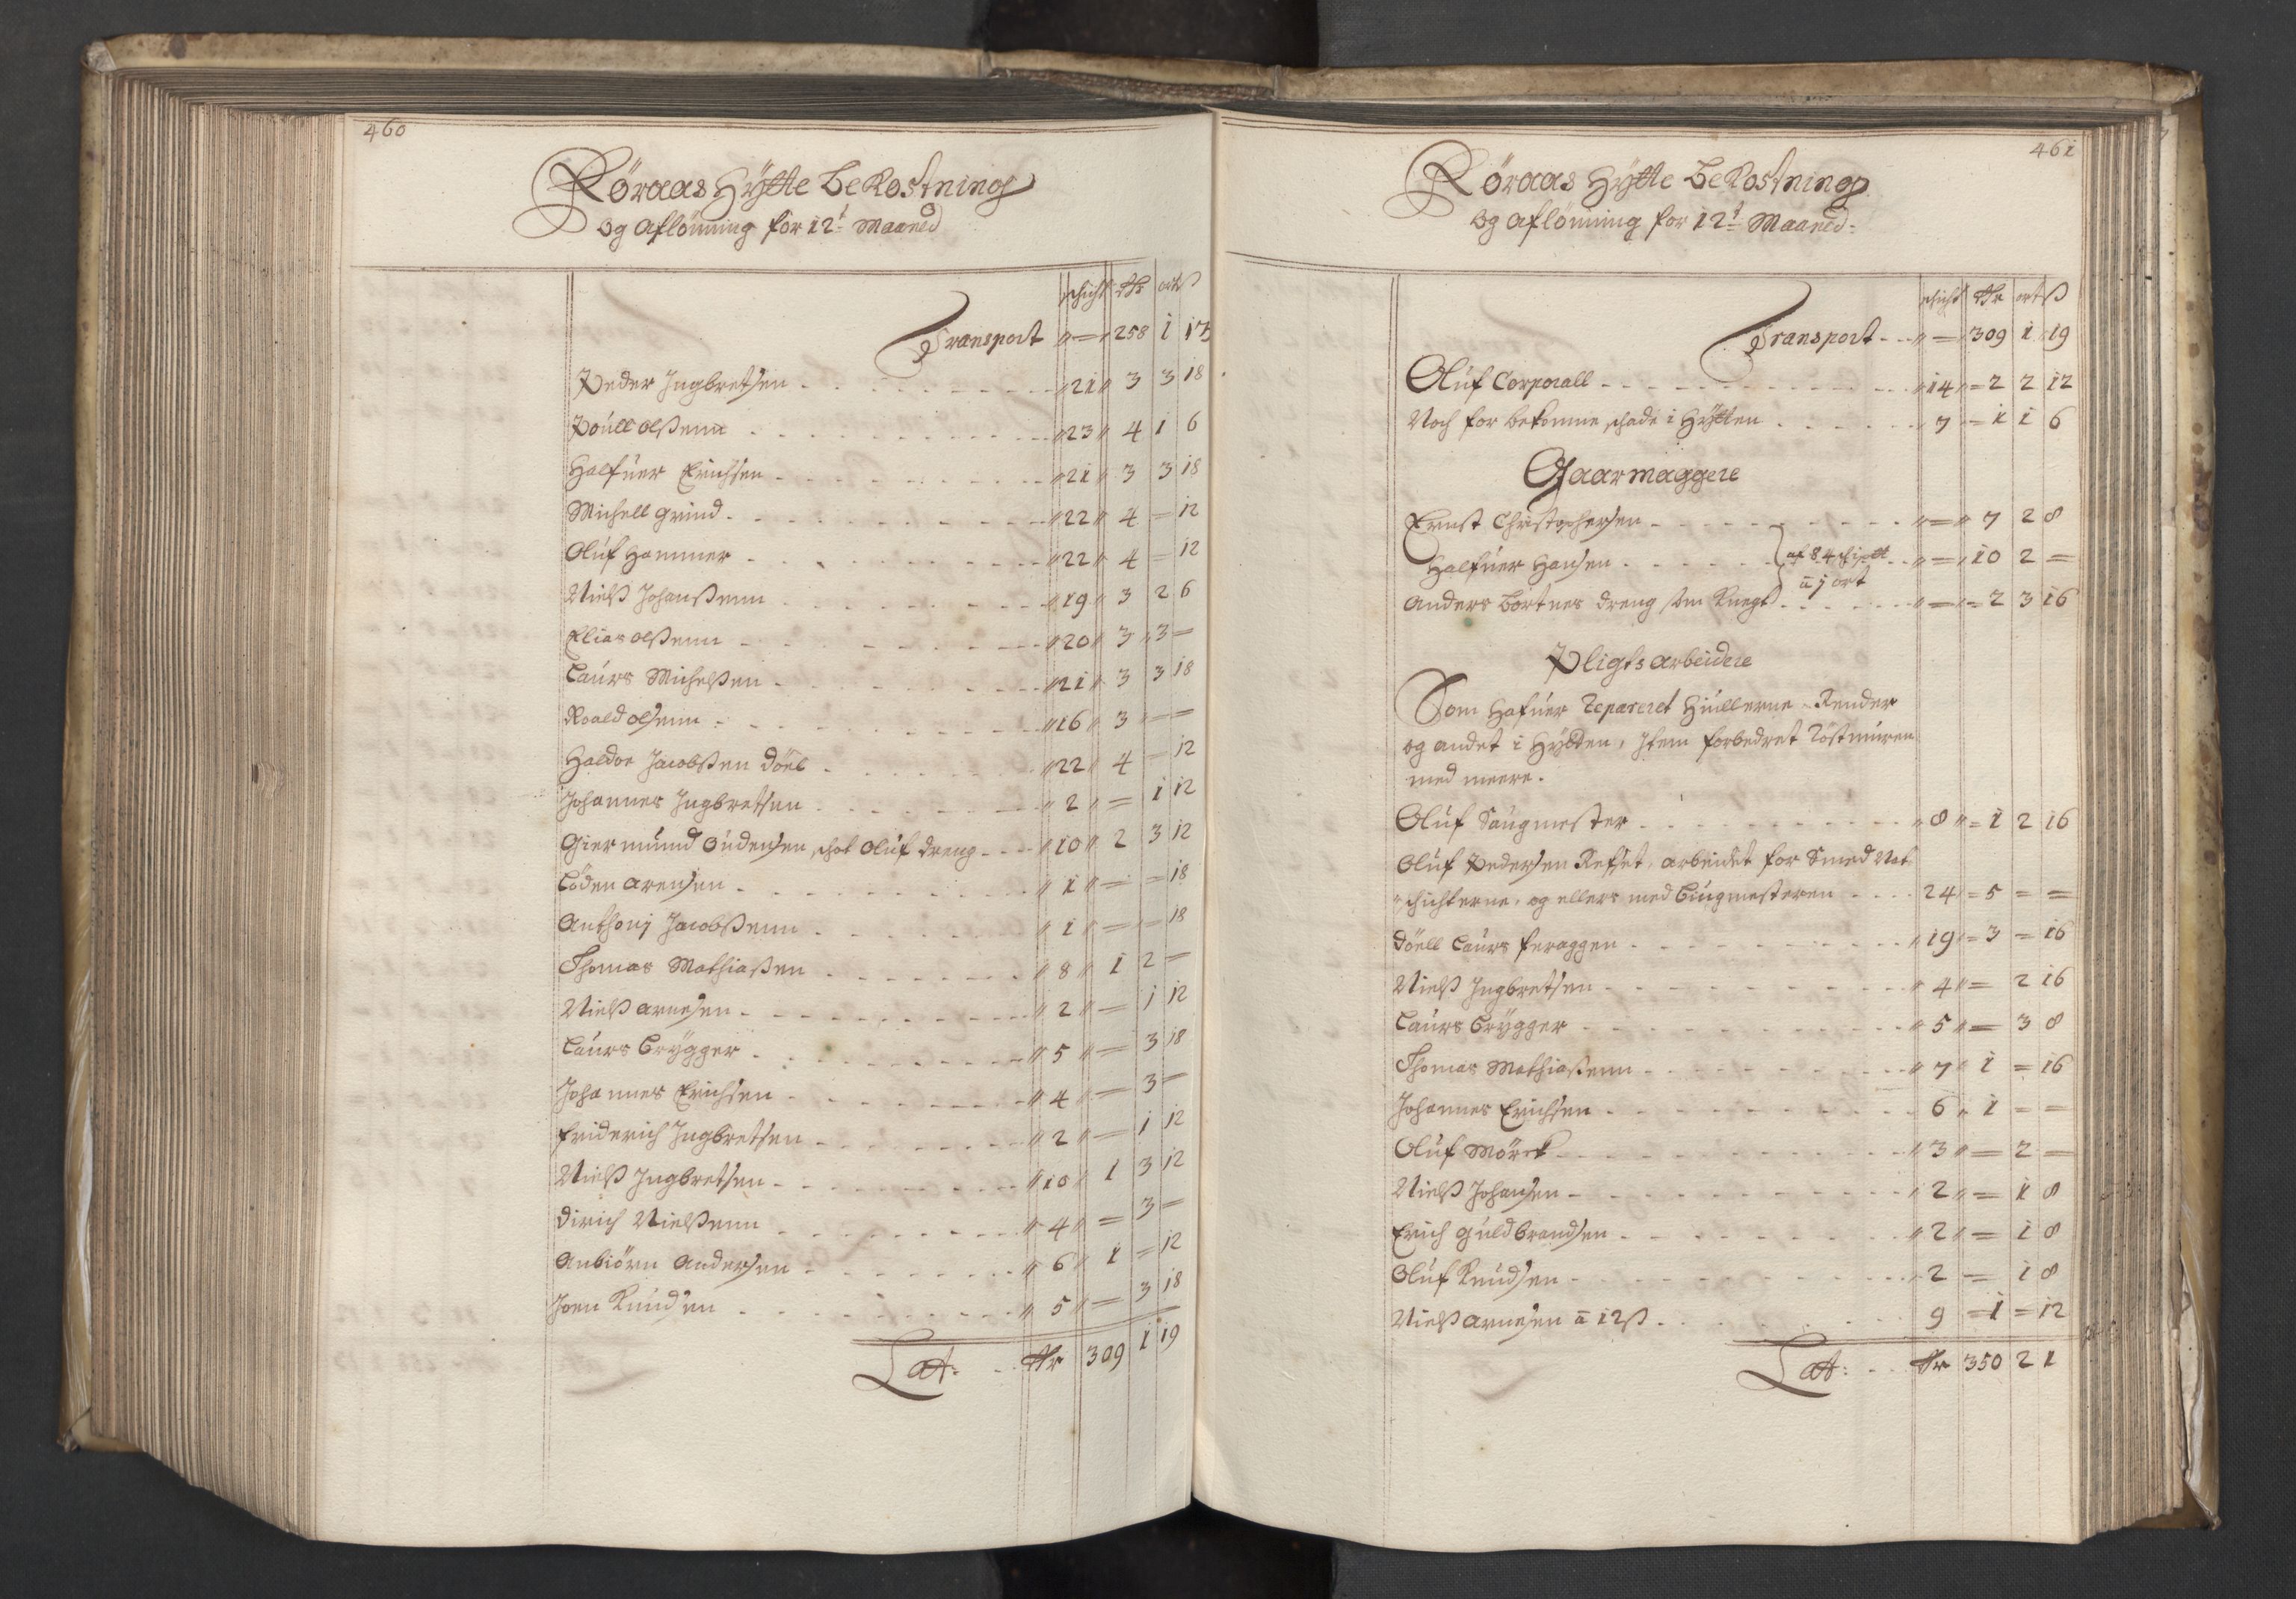 460
Röraas Hÿtte beKostning
Og Aflönning for 12t Maaned
schicht dlr ort ß
Transport „ = „ 258 1 17
Peder Ingbretsen „ 21 „ 3 3 18
Poull olßenn „ 23 „ 4 1 6
Halfuer Erichsen „ 21 „ 3 3 18
Michell grind „ 22 „ 4 = 12
Oluf Hammer „ 22 „ 4 = 12
Nielß Johanßenn „ 19 „ 3 2 6
Elias olßenn „ 20 „ 3 „ 3 =
Laurs Michelßen „ 21 „ 3 3 18
Roald olsenn „ 16 „ 3 = =
Haldor Jacobßen döel „ 22 „ 4 = 12
Johannes Ingbretsen „ 2 „ = 1 12
Giermund Oudensen, schot Oluf dreng „ 10 „ 2 3 12
Löden arensen „ 1 „ = = 18
Anthonj Jacobßenn „ 1 „ = = 18
Thomas Mathiaßen „ 8 „ 1 2 =
Nielß arnesen „ 2 „ = 1 12
Laurs Brÿgger „ 5 „ = 3 18
Johannes Erichsen „ 4 „ = 3 =
friderich Ingbretsen „ 2 „ = 1 12
Nielß Ingbretsen „ 10 „ 1 3 12
dirich Nielßenn „ 4 „ = 3 =
Anbiörn Andersen „ 6 „ 1 = 12
Joen Knudsen „ 5 „ = 3 18
Lat: dlr 309 1 19
461
Röraas Hÿtte beKostning
Og aflönning for 12t Maaned
schicht dlr ort ß
Transport „ = „ 309 1 19
Oluf Corporall „ 14 „ = 2 2 12
Noch for bekomne schade i Hÿtten 7 = 1 1 6
Gaarmaggere
Ernst Christophersen „ = „ 7 2 8
Halfuer Hansen af 84 schipt „ = „ 10 2 =
â j ort
Anders bortnes dreng som Knegt „ = „ = 2 3 16
Pligtsarbeidere
Som Hafuer Repareret Hiullerne Render
og andet i Hÿtten, Item forbedret Röstmuren
med meere.
Oluf Saugmester „ 8 „ = 1 2 16
Oluf Pedersen Refset, arbeidet for Smed Nat
schichterne, og ellers med Biugmesteren 24 = 5 = =
döell Laurs feraggen „ 19 „ = 3 = 16
Nielß Ingbretsen „ 4 „ = 2 16
Laurs Brÿgger „ 5 „ = 3 8
Thomas Mathiaßenn „ 7 „ 1 = 16
Johannes Erichsen 6 „ 1 = =
Oluf Mörck „ 3 „ = 2 =
Nielß Johansen „ 2 „ = 1 8
Erich guldbrandsen „ 2 „ = 1 8
Oluf Knudsen „ 2 = 1 8
Nielß arnesen â 12 ß 9 = 1 = 12
Lat: dlr 350 2 1